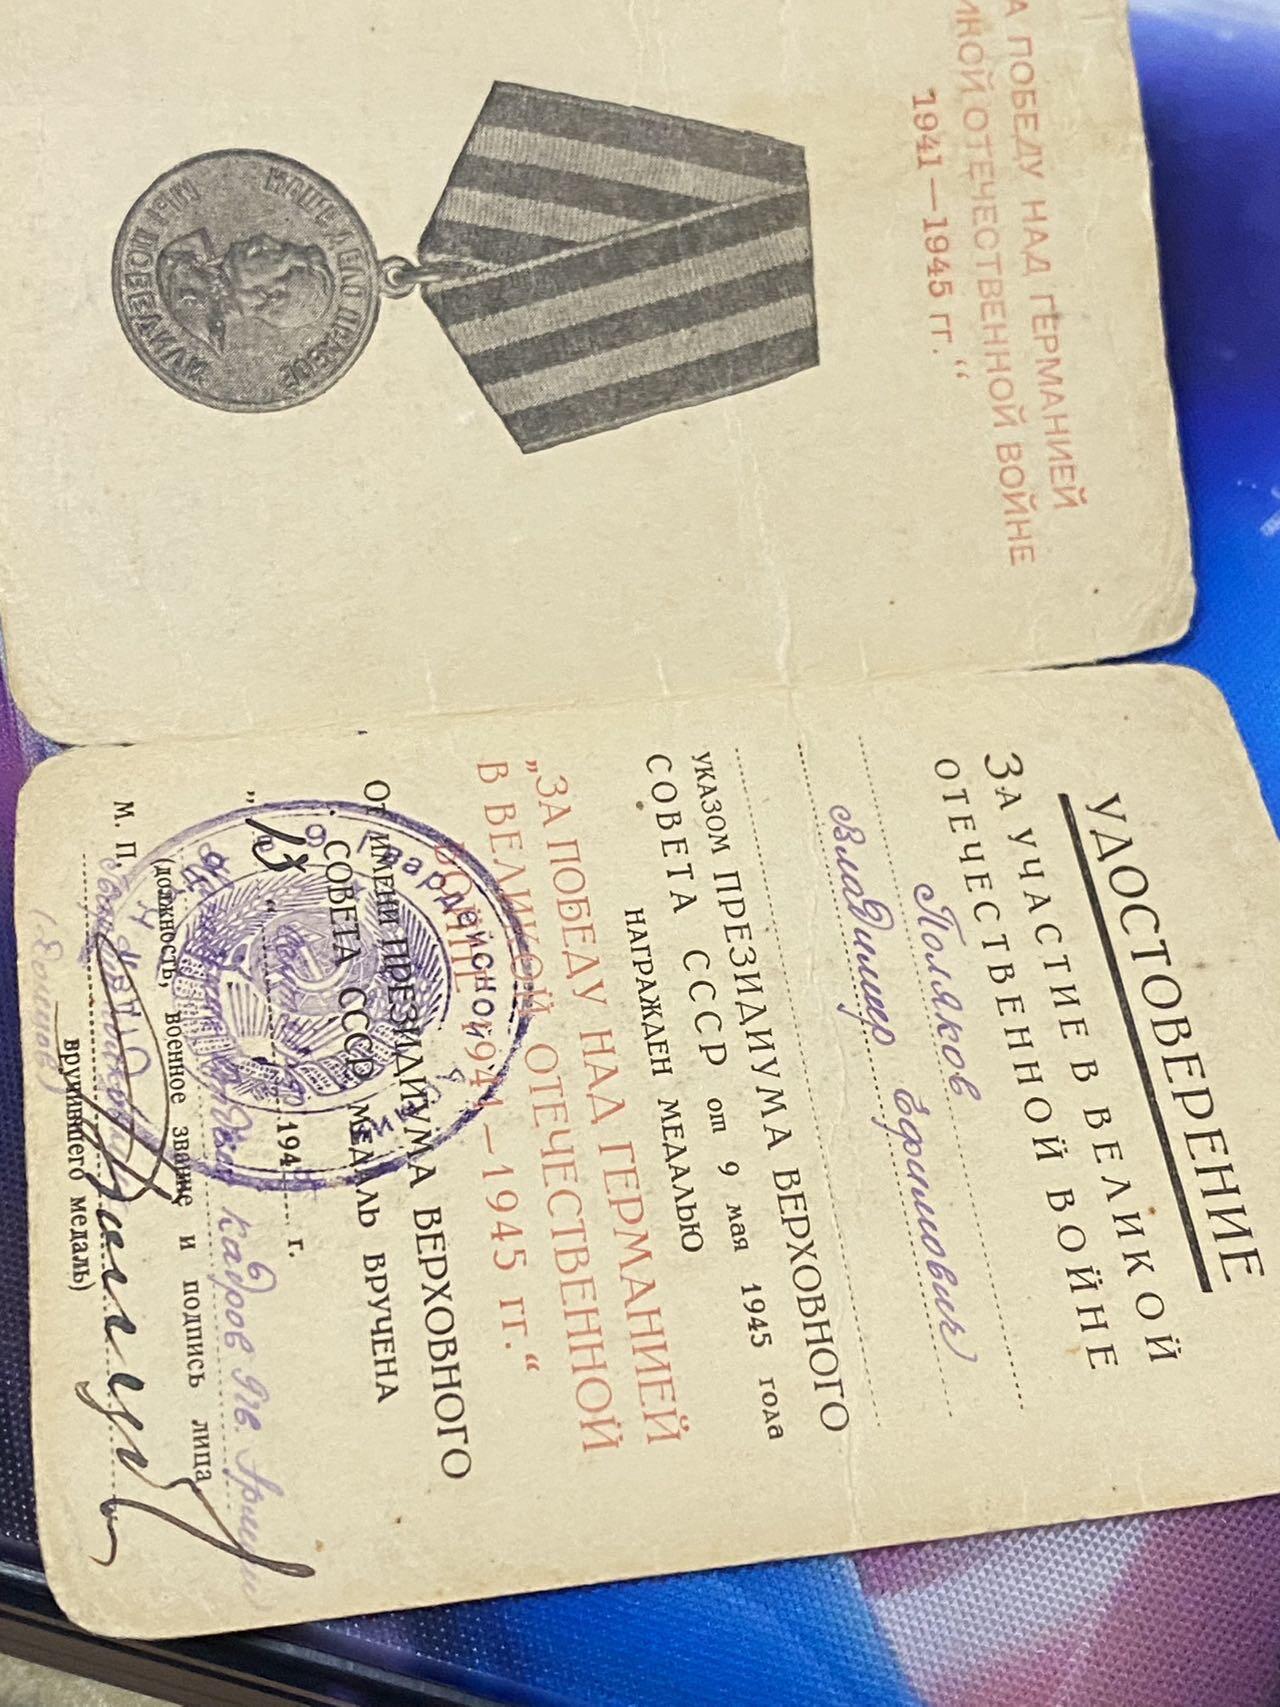 А ПОБЕДУ НАД ГЕРМАНИЕЙ
ИКОЙ ОТЕЧЕСТВЕННОЙ ВОЙНЕ
1941—1945 гг.“
НАШЕ ДЕЛО ПРАВОЕ
МЫ ПОБЕДИЛИ
УДОСТОВЕРЕНИЕ
ЗА УЧАСТИЕ В ВЕЛИКОЙ
ОТЕЧЕСТВЕННОЙ ВОЙНЕ
Поляков
Владимир Ефимович
УКАЗОМ ПРЕЗИДИУМА ВЕРХОВНОГО
СОВЕТА СССР от 9 мая 1945 года
НАГРАЖДЕН МЕДАЛЬЮ
„ЗА ПОБЕДУ НАД ГЕРМАНИЕЙ
В ВЕЛИКОЙ ОТЕЧЕСТВЕННОЙ
ВОЙНЕ 1941—1945 гг.“
От ИМЕНИ ПРЕЗИДИУМА ВЕРХОВНОГО
СОВЕТА СССР МЕДАЛЬ ВРУЧЕНА
„ “ 194 г.
кадров Армии
(должность, военное звание и подпись лица,
М. П.
вручившего медаль)
Гвардейской